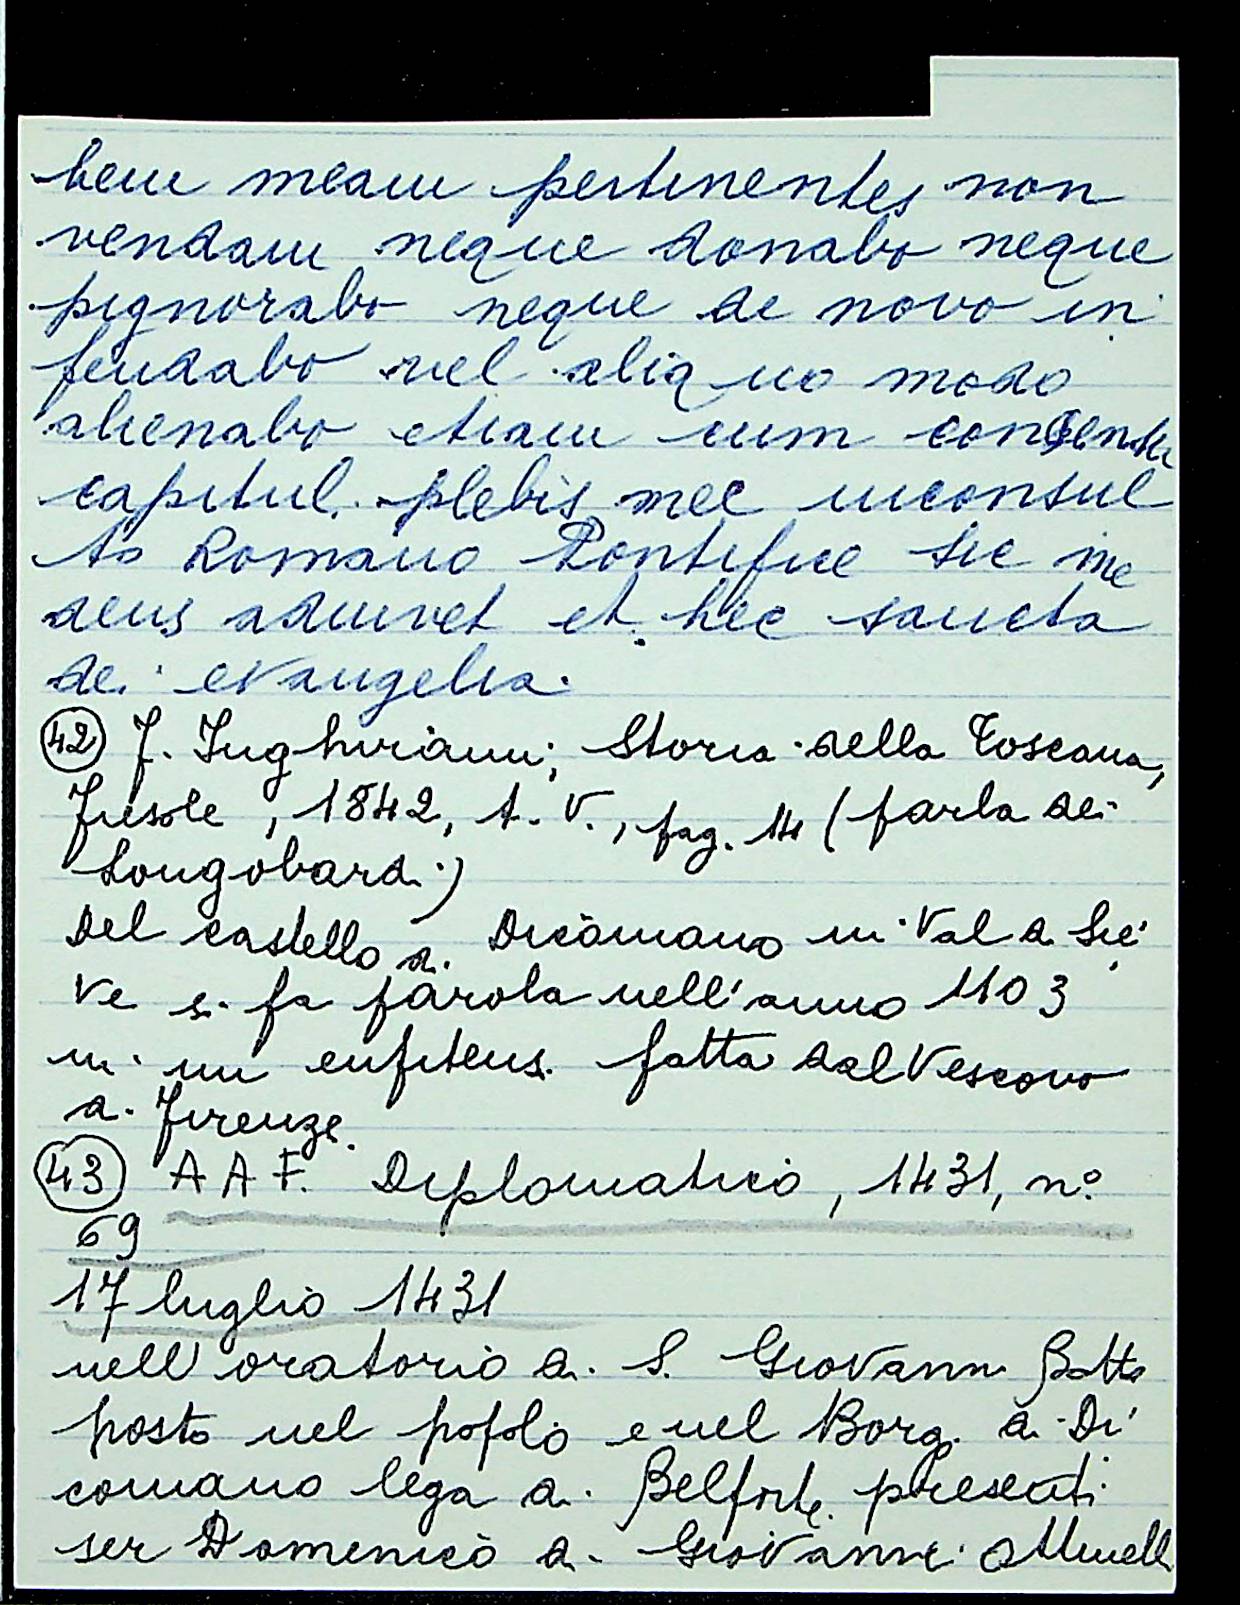 bem meam pertinentes non
vendam neque donabo neque
pignorabo neque de novo in
feudabo vel aliquo modo
alienabo etiam cum consensu
capituli plebis mee inconsul
to Romano Pontifice sic me
deus adiuvet et hec sancta
dei evangelia.
(42) F. Inghirami; Storia della Toscana,
Fiesole, 1842, t. V., pag. 14 (parla dei
Longobardi)
Del castello di Dicomano in Val di Sie
ve si fa parola nell'anno 1103
in un enfiteusi fatta dal Vescovo
di Firenze.
(43) A A F. Diplomatico, 1431, n°
69
17 luglio 1431
nell'oratorio di S. Giovanni Batta
posto nel popolo e nel Borgo di Di
comano lega di Belforte presenti
ser Domenico di Giovanni